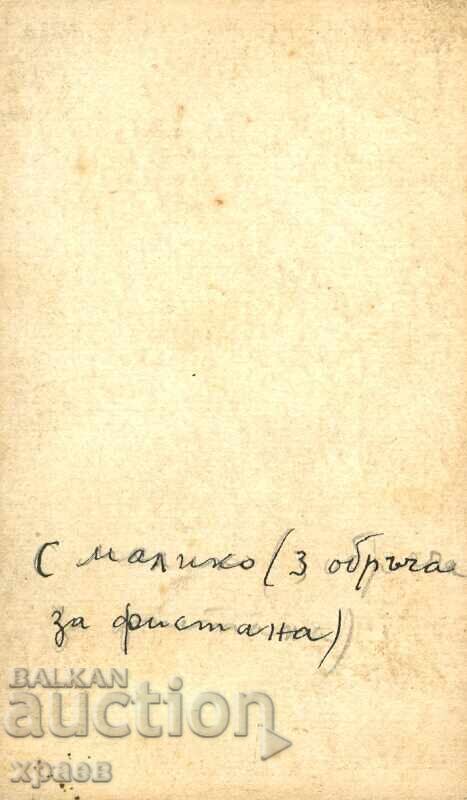 С малико (3 обръча
за фистана)
BALKAN
auction
храев